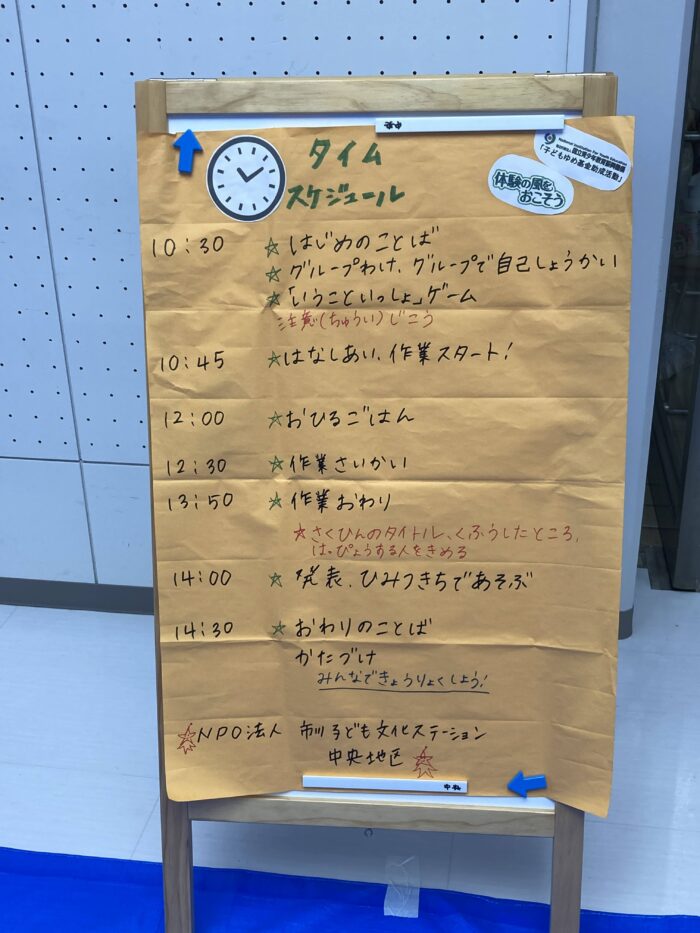 中央
タイム
スケジュール
National Institution For Youth Education
独立行政法人 国立青少年教育振興機構
「子どもゆめ基金助成活動」
体験の風を
おこそう
10:30 ☆はじめのことば
☆グループわけ、グループで自己しょうかい
☆「いうこといっしょ」ゲーム
注意(ちゅうい)じこう
10:45 ☆はなしあい、作業スタート!
12:00 ☆おひるごはん
12:30 ☆作業さいかい
13:50 ☆作業おわり
☆さくひんのタイトル、くふうしたところ、
はっぴょうする人をきめる
14:00 ☆発表、ひみつきちであそぶ
14:30 ☆おわりのことば
かたづけ
みんなできょうりょくしよう!
☆NPO法人 市川子ども文化ステーション
中央地区☆
中央